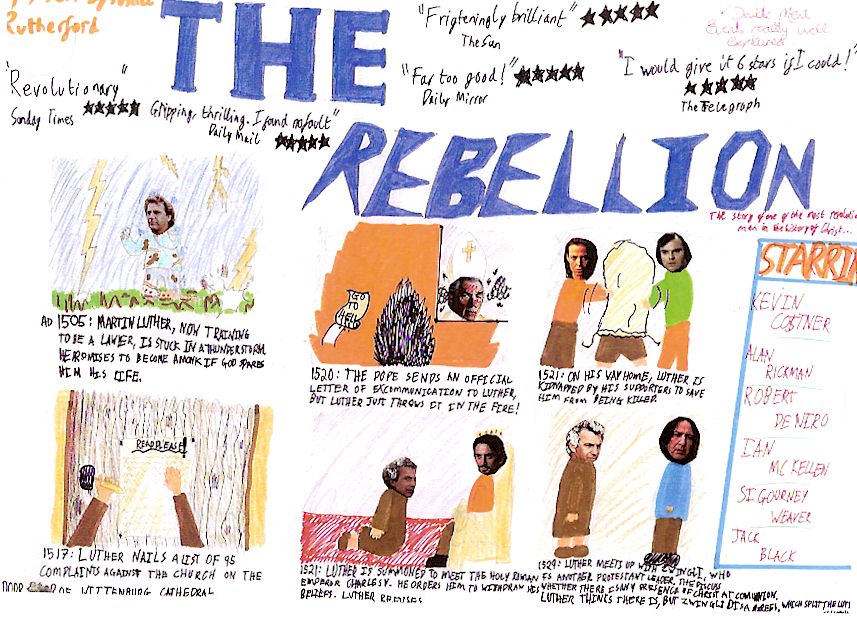 Rutherford
THE
REBELLION
"Frigteningly brilliant" ★★★★★
The Sun
"Revolutionary"
Sunday Times ★★★★★
"Far too good!" ★★★★★
Daily Mirror
Gripping, thrilling. I found no fault"
Daily Mail ★★★★★
"I would give it 6 stars if I could!"
★★★★★
The Telegraph
Events really well
The story of one of the most
men in the history of Christ...
STARRIN
KEVIN
COSTNER
ALAN
RICKMAN
ROBERT
DE NIRO
IAN
MC KELLEN
SIGOURNEY
WEAVER
JACK
BLACK
AD 1505: MARTIN LUTHER, NOW TRAINING
TO BE A LAWER, IS STUCK IN A THUNDERSTORM.
HE ROMISES TO BECOME A MONK IF GOD SPARES
HIM HIS LIFE.
GO
TO
HELL
1520: THE POPE SENDS AN OFFICIAL
LETTER OF EXCOMMUNICATION TO LUTHER,
BUT LUTHER JUST THROWS IT IN THE FIRE!
1521: ON HIS WAY HOME, LUTHER IS
KIDNAPPED BY HIS SUPPORTERS TO SAVE
HIM FROM BEING KILLED.
READ PLEASE!
1517: LUTHER NAILS A LIST OF 95
COMPLAINTS AGAINST THE CHURCH ON THE
DOOR OF WITTENBURG CATHEDRAL
1521: LUTHER IS SUMMONED TO MEET THE HOLY ROMAN
EMPEROR CHARLES V. HE ORDERS HIM TO WITHDRAW HIS
BELIEFS. LUTHER REFUSES
1529: LUTHER MEETS UP WITH ZWINGLI, WHO
IS ANOTHER PROTESTANT LEADER. THE DISCUS
WHETHER THERE IS ANY PRESENCE OF CHRIST AT COMUNION.
LUTHER THINKS THERE IS, BUT ZWINGLI DISAGREES, WHICH SPLIT THE